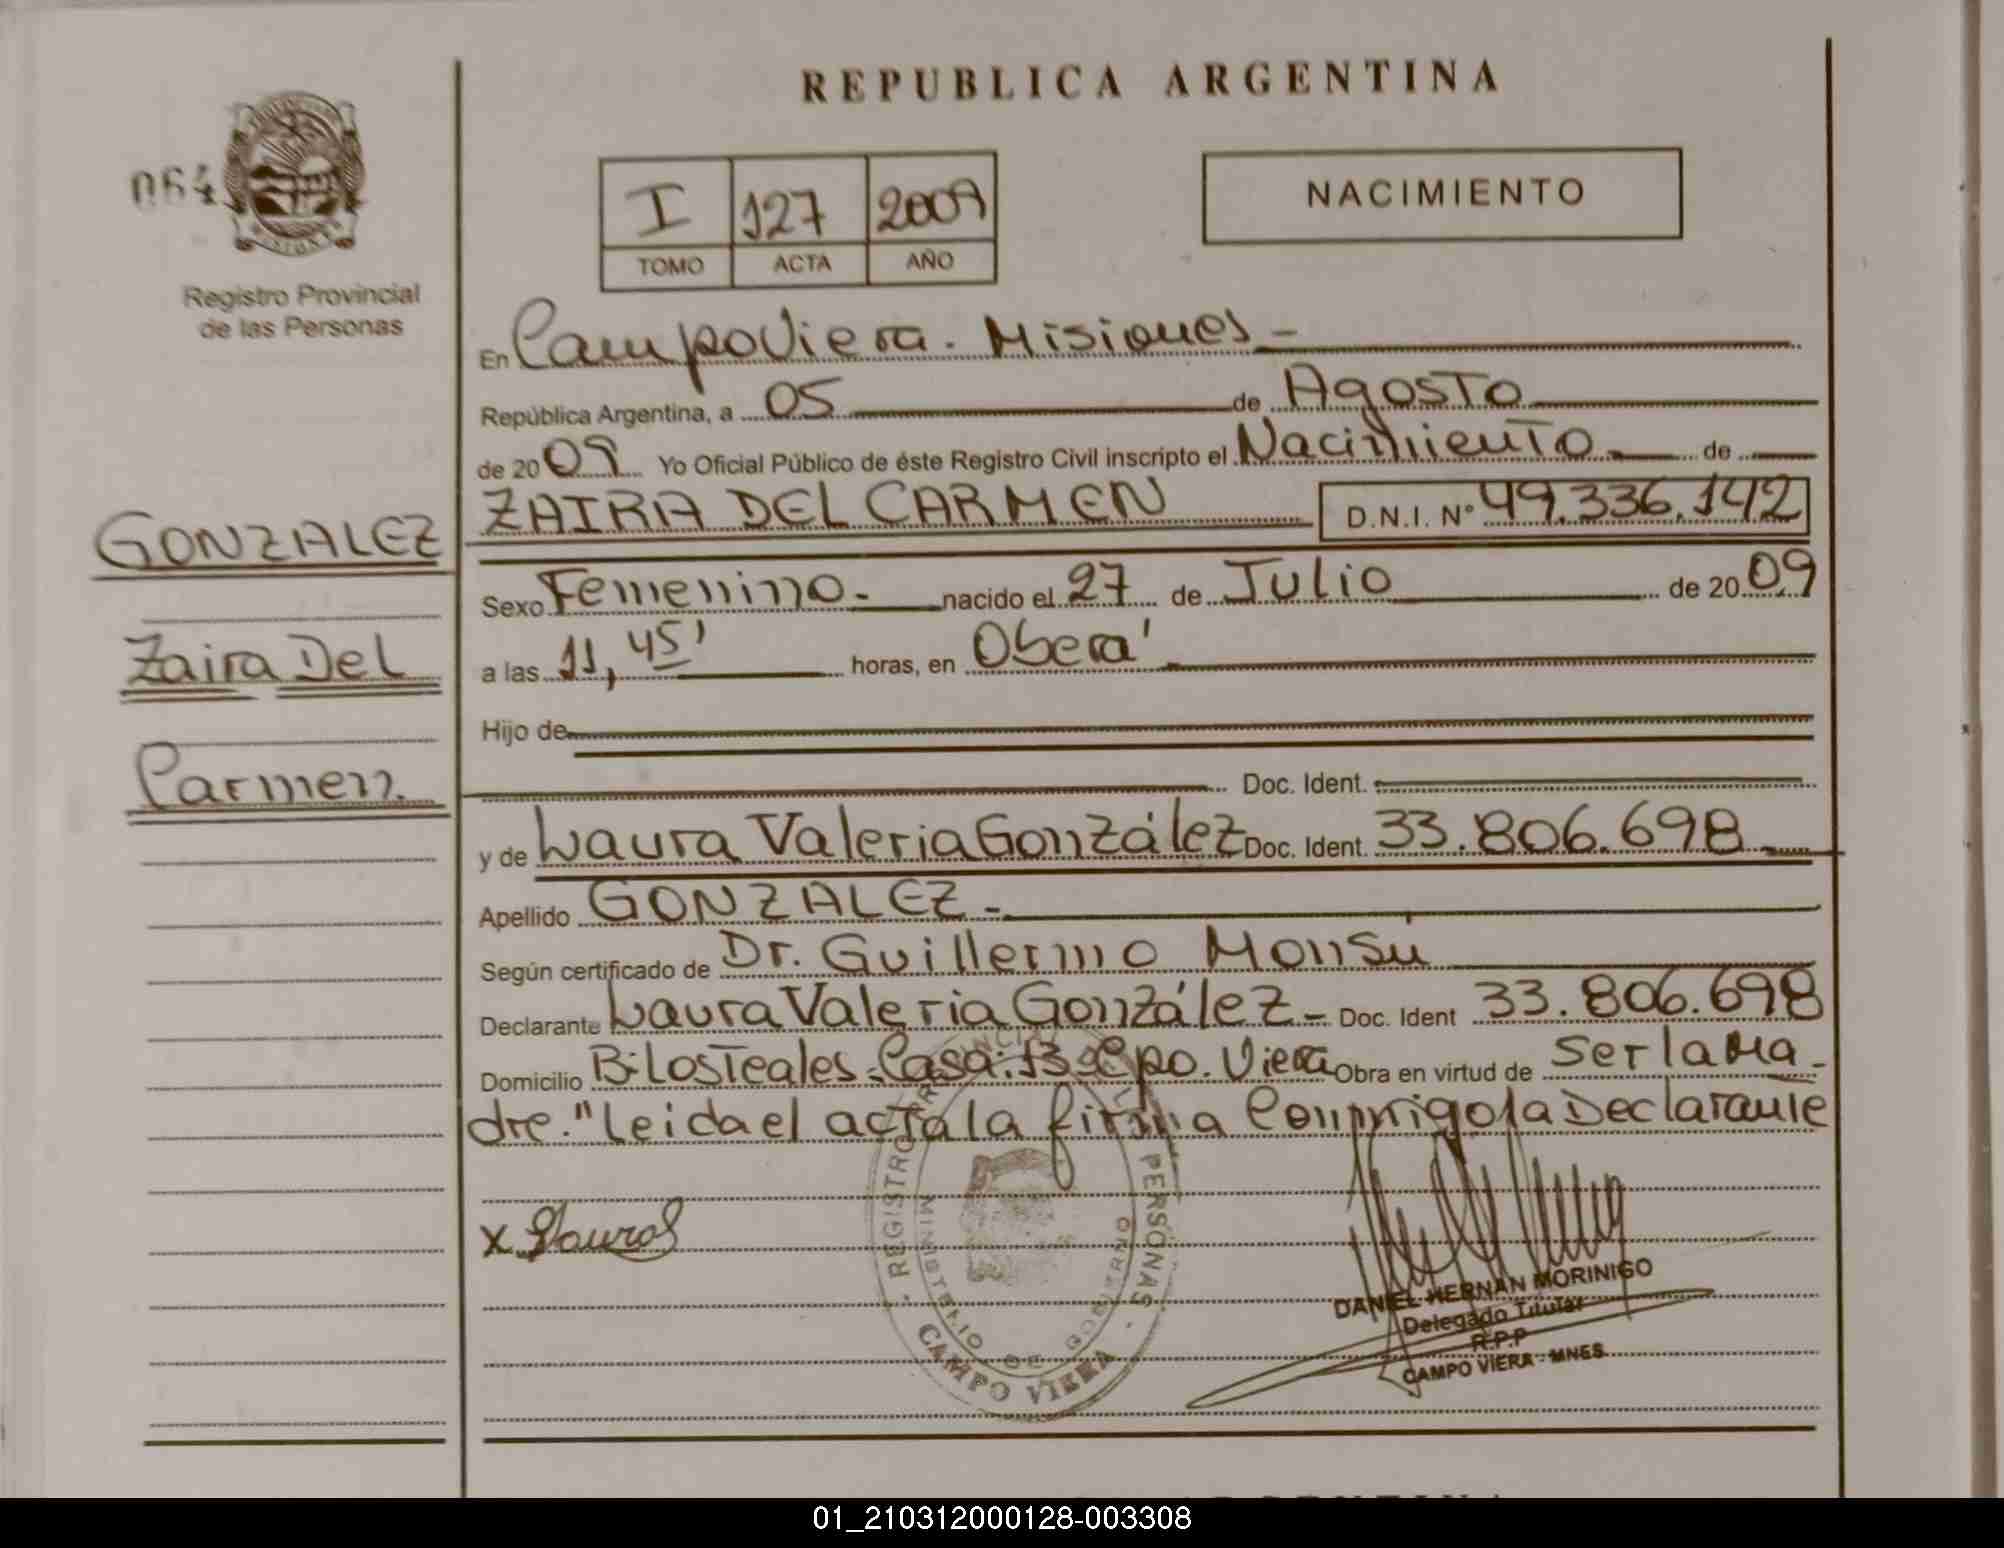 REPUBLICA ARGENTINA
064
I 127 2009
TOMO ACTA AÑO
NACIMIENTO
Registro Provincial
de las Personas
En Campo Viera. Misiones -
República Argentina, a 05 de Agosto
de 2009 Yo Oficial Público de éste Registro Civil inscripto el Nacimiento de
ZAIRA DEL CARMEN D.N.I. N° 49.336.142
GONZALEZ
Zaira Del
Carmen.
Sexo Femenino. nacido el 27 de Julio de 2009
a las 11,45' horas, en Oberá
Hijo de
Doc. Ident.
y de Laura Valeria González Doc. Ident. 33.806.698
Apellido GONZALEZ -
Según certificado de Dr. Guillermo Monsú
Declarante Laura Valeria González - Doc. Ident 33.806.698
Domicilio B: Los Teales. Casa: 13 Cpo. Viera Obra en virtud de Ser la Ma
dre. "Leida el acta la firma Conmigo la Declarante
REGISTRO PERSONAS
MINISTERIO DE GOBIERNO
CAMPO VIERA
DANIEL HERNAN MORINIGO
Delegado Titular
R.P.P
CAMPO VIERA - MNES
01_210312000128-003308